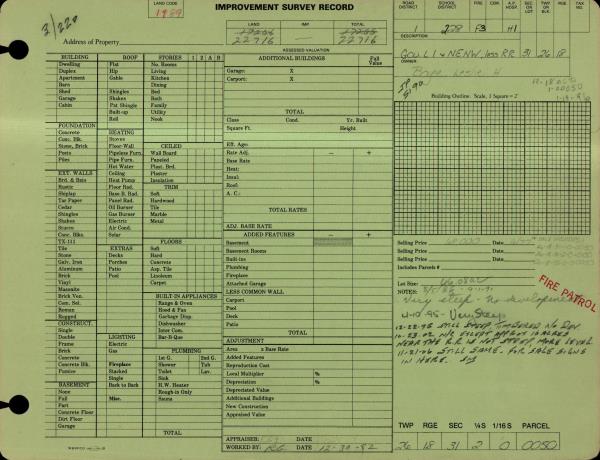 LAND CODE
1989
IMPROVEMENT SURVEY RECORD
ROAD DISTRICT
SCHOOL DISTRICT
FIRE
A.P. HOSP.
TWP OR BLK.
RGE
TAX
2/220
LAND IMP TOTAL
22716 — 22716
228 F3 H1 1
Address of Property
ASSESSED VALUATION
DESCRIPTION
GOV LI & NENW, less RR 31 26 18
OWNER
BUILDING ROOF STORIES 1 2 A B
Dwelling Flat No. Rooms
Duplex Hip Living
Apartment Gable Kitchen
Barn Dining
Shed Shingles Bed
Garage Shakes Bath
Cabin Pat Shingle Family
Built-up Utility
Roll Nook
FOUNDATION
Concrete HEATING
Conc. Blk. Stoves CEILED
Stone, Brick Floor-Wall Wall Board
Posts Pipeless Furn. Paneled
Piles Pipe Furn. Plast. Brd.
Hot Water Plaster
EXT. WALLS Ceiling Insulation
Brd. & Bats Heat Pump
Rustic Floor Rad. TRIM
Shiplap Base B. Rad. Soft
Tar Paper Panel Rad. Hardwood
Cedar Oil Burner Tile
Shingles Gas Burner Marble
Shakes Electric Metal
Stucco Air Cond.
Conc. Blks. Solar
TX-111 FLOORS
Tile EXTRAS Soft
Stone Decks Hard
Galv. Iron Porches Concrete
Aluminum Patio Asp. Tile
Brick Pool Linoleum
Vinyl Carpet
Masonite
Brick Ven. BUILT-IN APPLIANCES
Com. Sel. Range & Oven
Roman Hood & Fan
Rugged Garbage Disp.
CONSTRUCT. Dishwasher
Single Inter Com.
Double LIGHTING Bar-B-Que
Frame Electric
Brick Gas PLUMBING
Concrete 1st G. 2nd G.
Concrete Blk. Fireplace Shower Tub
Pumice Stacked Toilet Lav.
Single Sink
BASEMENT Back to Back H.W. Heater
None Rough-in Only
Full Misc. Sauna
Part
Concrete Floor
Dirt Floor
Garage
TOTAL
ADDITIONAL BUILDINGS Full Value
Garage: X
Carport: X
TOTAL
Class Cond. Yr. Built
Square Ft. Height
Eff. Age:
Rate Adj. — +
Base Rate
Heat:
Insul:
Roof:
A. C.:
TOTAL RATES
ADJ. BASE RATE
ADDED FEATURES — +
Basement
Basement Rooms
Built-ins
Plumbing
Fireplace
Attached Garage
LESS COMMON WALL
Carport
Pool
Deck
Patio
TOTAL
ADJUSTMENT
Area x Base Rate
Added Features
Reproduction Cost
Local Multiplier %
Depreciation %
Depreciated Value
Additional Buildings
New Construction
Appraised Value
APPRAISER DATE
WORKED BY RG DATE 12-30-82
Building Outline. Scale, 1 Square = 2'
Selling Price Date
Selling Price Date
Includes Parcels #
Lot Size:
NOTES:
FIRE PATROL
Very steep - No development
4-10-95 - Very Steep
12-22-95 STILL STEEP TIMBERED NO DEV
10-23-02 N/C EXCEPT APPROX 10 ACRES
NEAR THE R.R. IS NOT STEEP, MORE LEVEL
11-21-06 STILL SAME. FOR SALE SIGNS
IN HERE.
TWP RGE SEC ¼S 1/16 S PARCEL
26 18 31 2 0 0050